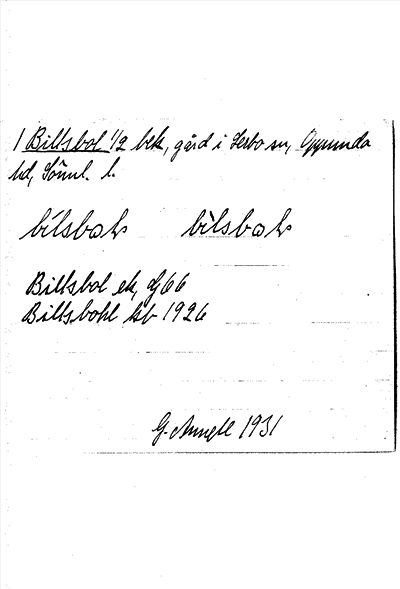 1 Billsbol 1/2 bek, gård i Lerbo sn, Oppunda
hd, Söml. l.
bilsboḷ bìlsboḷ
Billsbol ek, dj 66
Billsbohl kb 1926
G. 1931